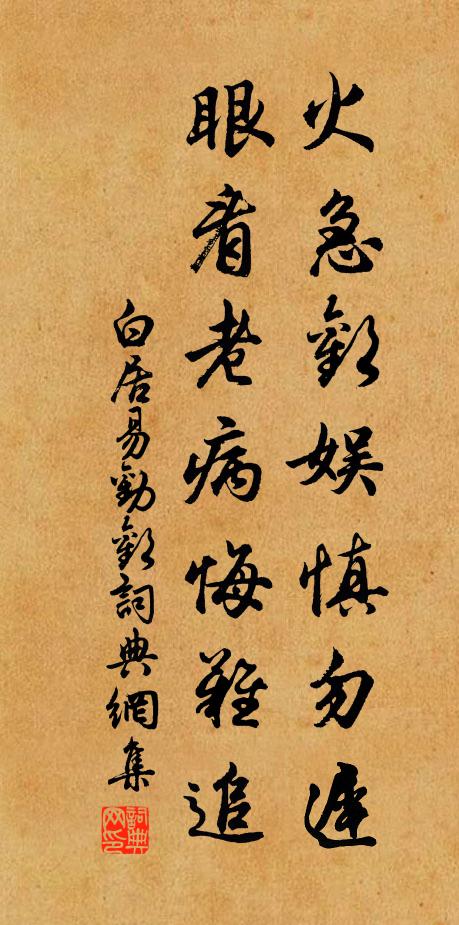 火急歡娛慎勿遲
眼看老病悔難追
白居易勸歡詞典網集
詞典网印